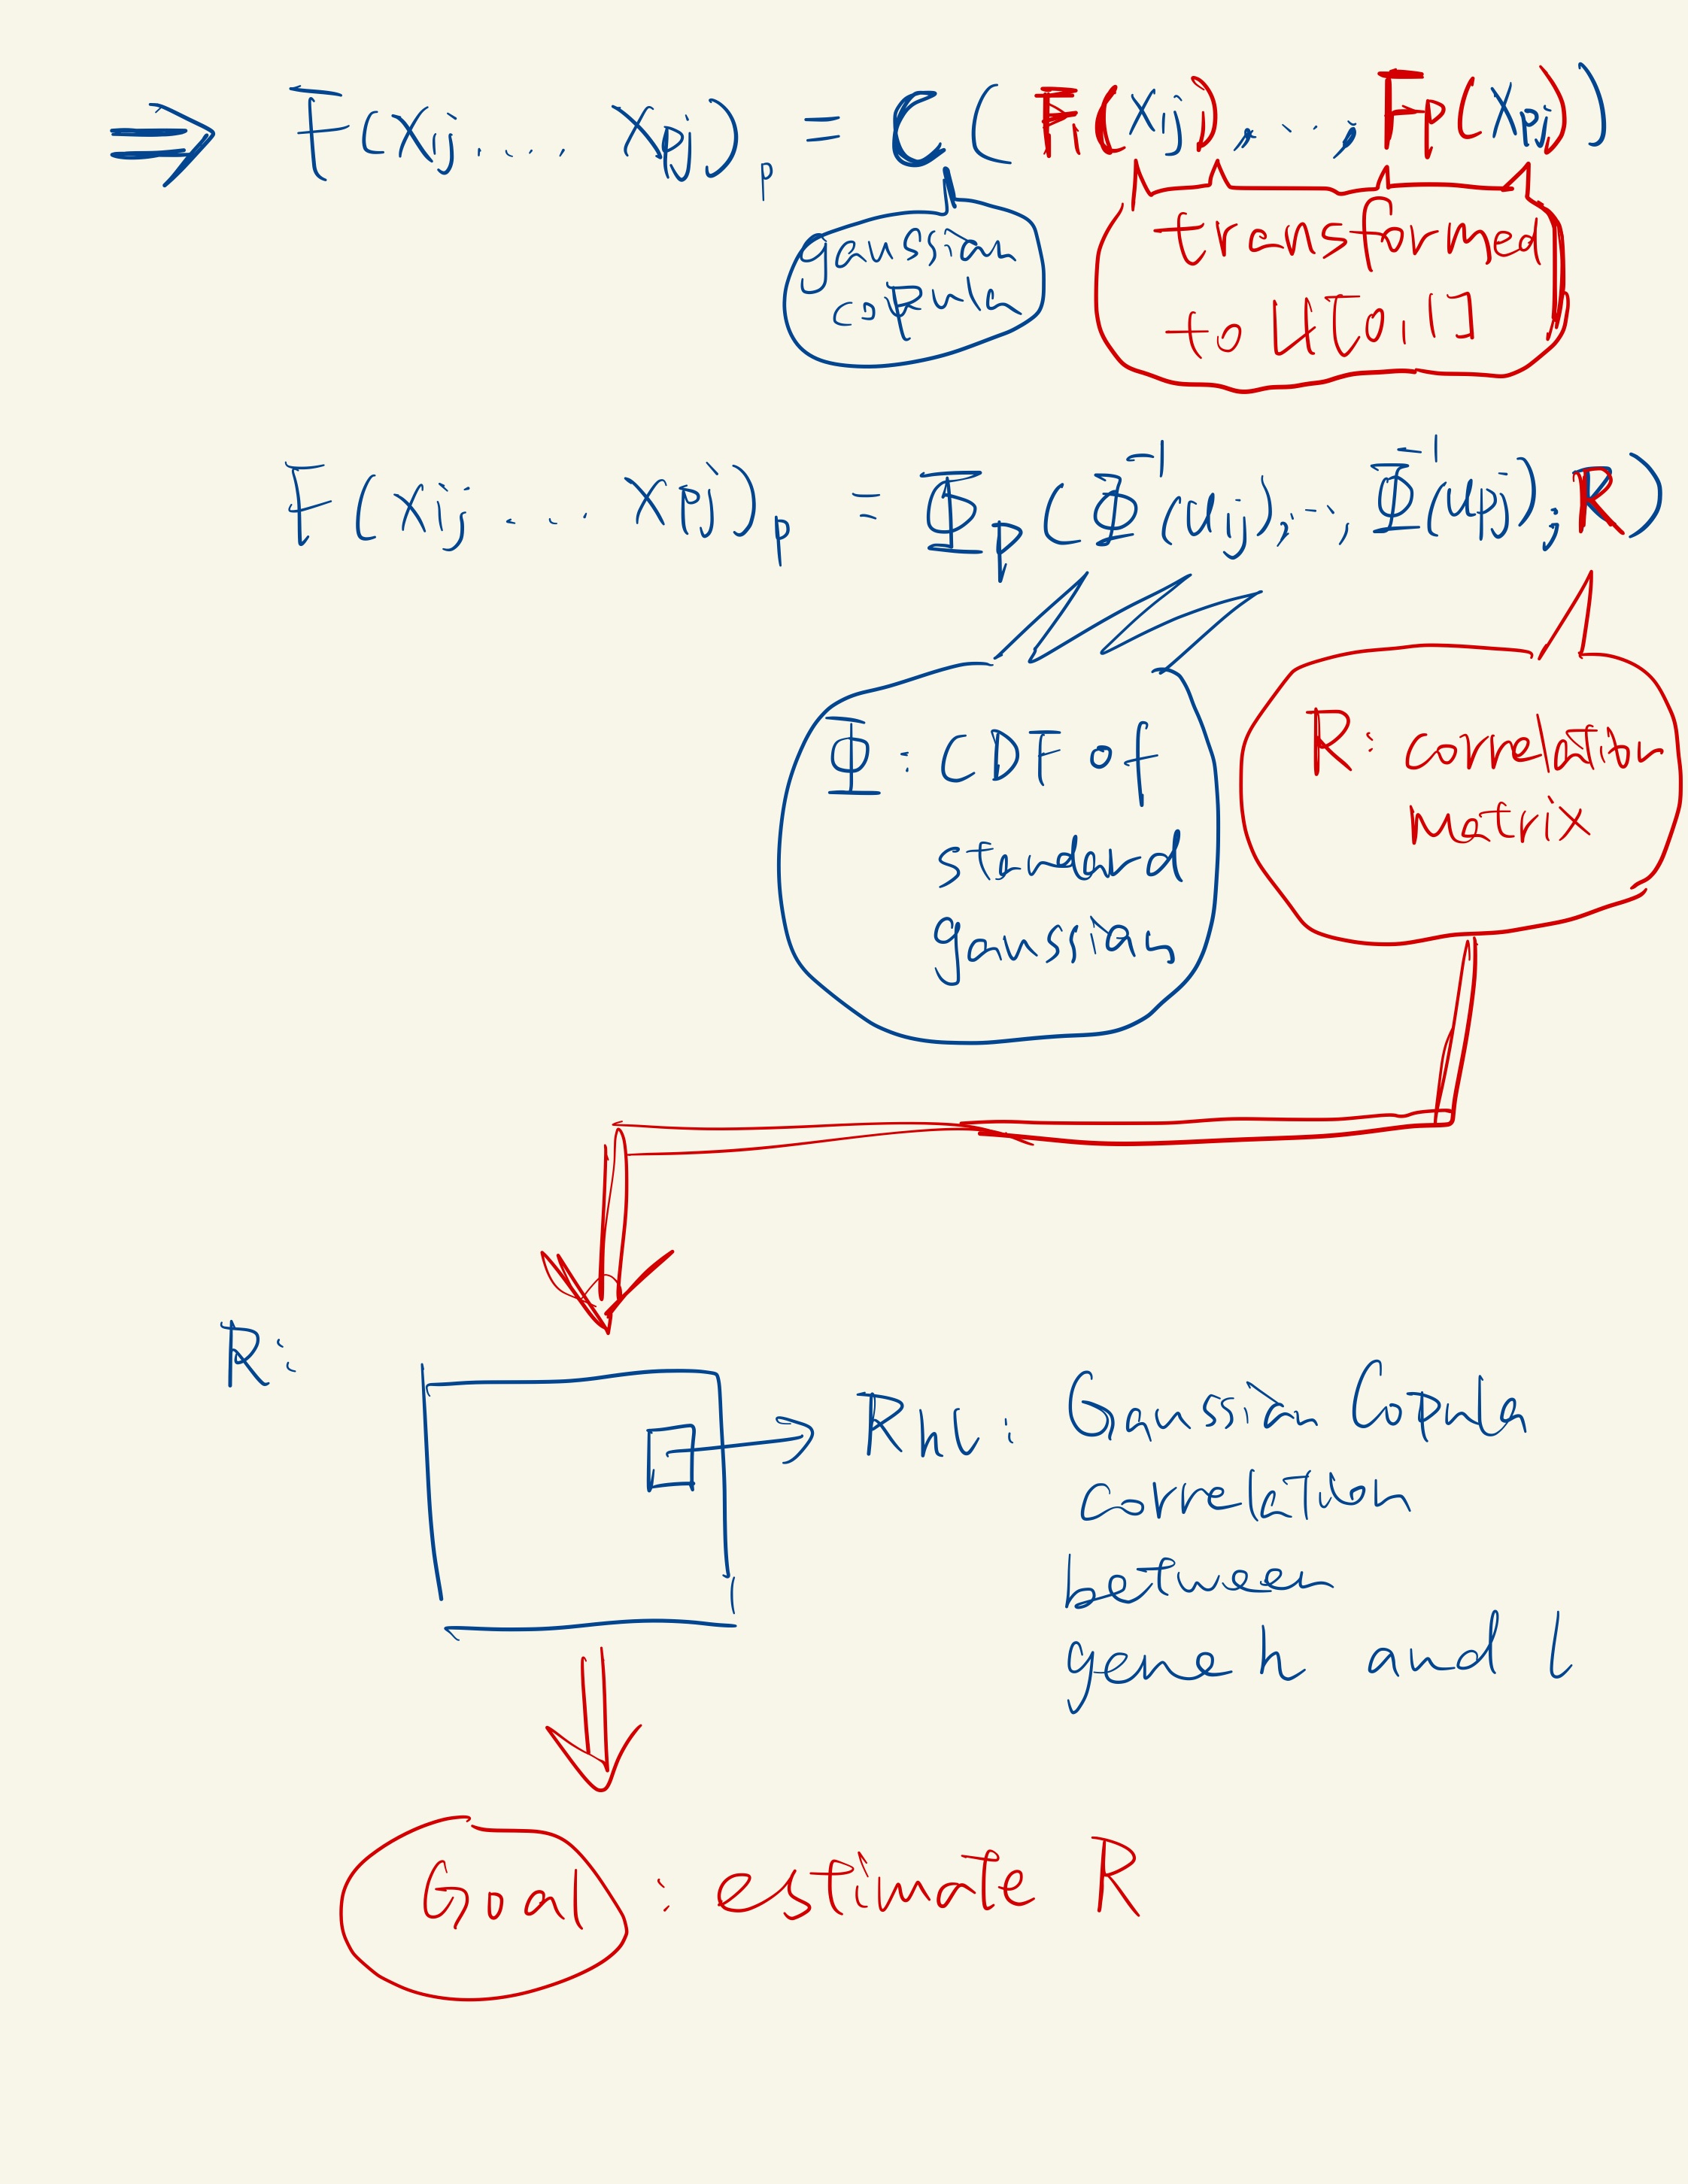 ⇒ F(X1j ..... Xpj)p = C(F1(X1j), ..., Fp(Xpj))
gaussian
copula
transformed
to U[0,1]
F(X1j ... Xpj)p = Φp(Φ⁻¹(u1j), ..., Φ⁻¹(upj); R)
Φ: CDF of
standard
gaussian
R: correlation
matrix
R:
Rhl: Gaussian Copula
correlation
between
gene h and l
Goal: estimate R